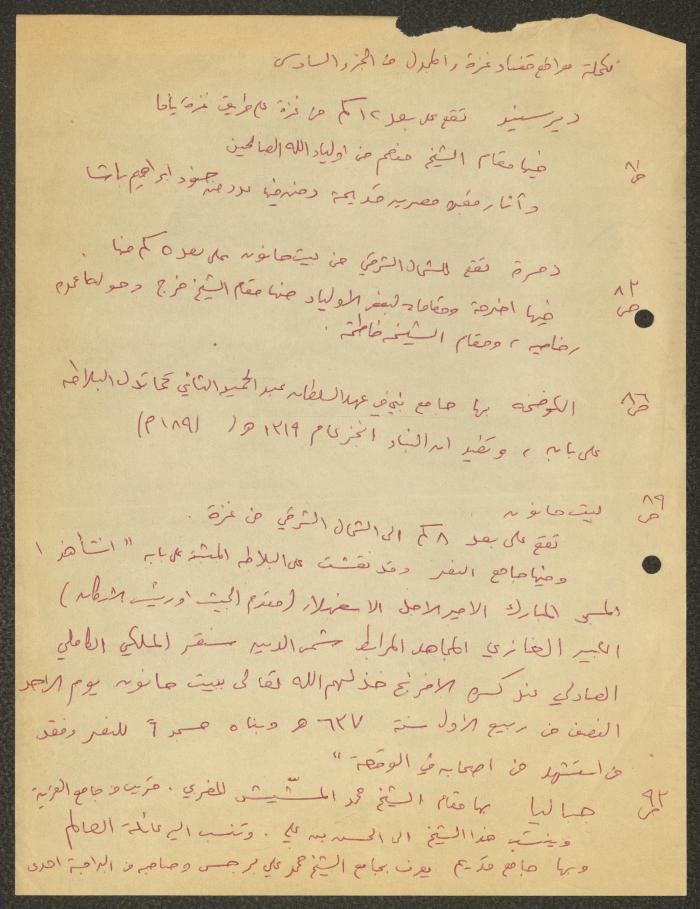 تكملة مواقع قضاء غزة والمجدل من الجزء السادس
دير سنيد تقع على بعد ١٢ كم من غزة على طريق غزة يافا
ص ٨١ فيها مقام الشيخ من اولياء الله الصالحين
وآثار مقبرة مصرية قديمة دفن فيها عدد من جنود ابراهيم باشا
دمرة تقع للشمال الشرقي من بيت حانون على بعد ٥ كم منها
ص ٨٢ فيها اضرحة ومقامات لبعض الاولياء منها مقام الشيخ فرج وحوله اعمدة
رخامية ، ومقام الشيخة فاطمة .
ص ٨٦ الكوفخة بها جامع بني في عهد السلطان عبد الحميد الثاني كما تدل البلاطة
على بابه ، وتفيد ان البناء انجز عام ١٣١٩ هـ ( ١٨٩ م)
ص ٨٩ بيت حانون
تقع على بعد ٨ كم الى الشمال الشرقي من غزة .
وفيها جامع النصر وقد نقشت على البلاطة المثبتة على بابه " انشأ هذا
المسجد المبارك الامير الاجل الاسفهلار (مقدم الجيش او رئيس الاركان)
الكبير الغازي المجاهد المرابط شمس الدين سنقر الملكي الكاملي
العادلي عند كسرة الافرنج خذلهم الله تعالى ببيت حانون يوم الاحد
النصف من ربيع الاول سنة ٦٣٧ هـ وبناه مسجداً للنصر وفقد
من استشهد من اصحابه في الوقعة "
ص ٩٢ جباليا بها مقام الشيخ محمد المشّيش المغربي . قريب و جامع العزبة
وينتسب هذا الشيخ الى الحسن بن علي . وتنسب اليه عائلة العالم
وبها جامع قديم يعرف بجامع الشيخ محمد علي برجس وصاحبه من الواجهة احدى